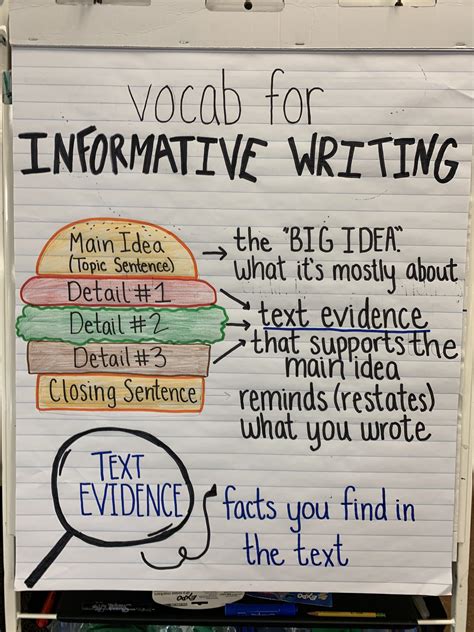 vocab for
INFORMATIVE WRITING
Main Idea
(Topic Sentence)
the "BIG IDEA"
what it's mostly about
Detail #1
Detail #2
Detail #3
text evidence
that supports the
main idea
Closing Sentence
reminds (restates)
what you wrote
TEXT
EVIDENCE
facts you find in
the text
EXPO